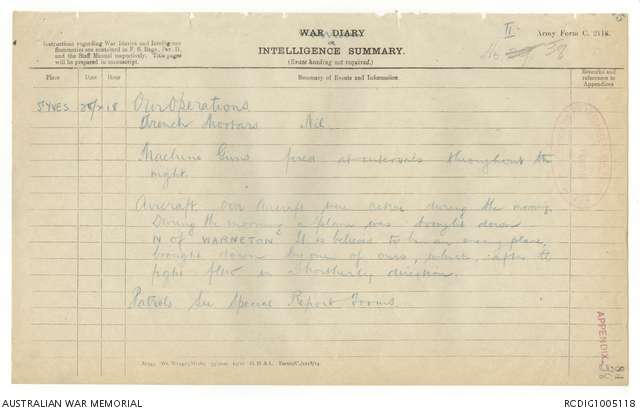 WAR DIARY
or
INTELLIGENCE SUMMARY.
(Erase heading not required.)
Instructions regarding War Diaries and Intelligence
Summaries are contained in F. S. Regs., Part II.
and the Staff Manual respectively. Title pages
will be prepared in manuscript.
II
No 38
Army Form C. 2118.
Place Date Hour Summary of Events and Information Remarks and references to Appendices
ST YVES 18 Our Operations
Trench Mortars Nil
Machine Guns fired at intervals throughout the
night.
Aircraft Our Aircraft were active during the morning.
During the morning a plane was brought down
N of WARNETON. It is believed to be an enemy plane,
brought down by one of ours, which, after the
fight flew in a Northerly direction.
Patrols See Special Report Forms.
APPENDIX 38
AUSTRALIAN WAR MEMORIAL
RCDIG1005118